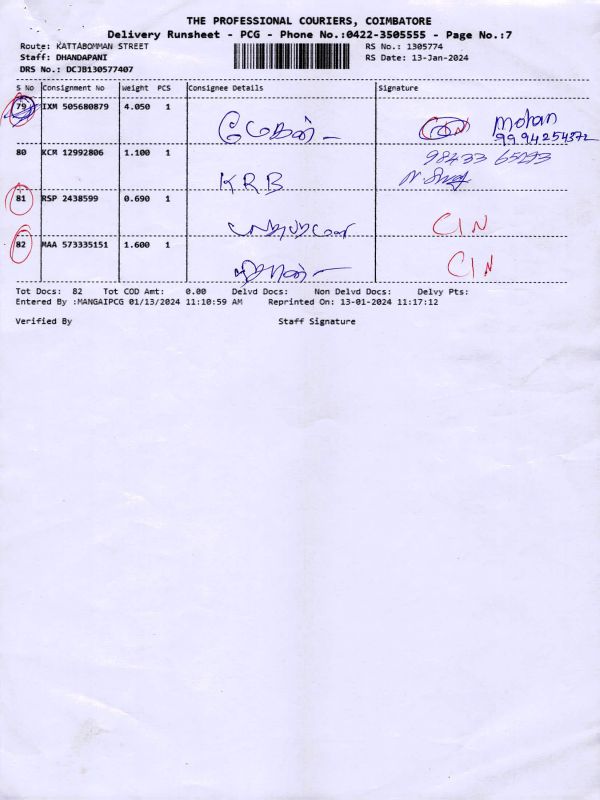 THE PROFESSIONAL COURIERS, COIMBATORE
Delivery Runsheet - PCG - Phone No.:0422-3505555 - Page No.:7
Route: KATTABOMMAN STREET RS No.: 1305774
Staff: DHANDAPANI RS Date: 13-Jan-2024
DRS No.: DCJB130577407
S No Consignment No Weight PCS Consignee Details Signature
79 IXM 505680879 4.050 1
Mohan
9994254372
80 KCM 12992806 1.100 1 98433 65293
KRB
81 RSP 2438599 0.690 1
CIN
82 MAA 573335151 1.600 1
CIN
Tot Docs: 82 Tot COD Amt: 0.00 Delvd Docs: Non Delvd Docs: Delvy Pts:
Entered By :MANGAIPCG 01/13/2024 11:10:59 AM Reprinted On: 13-01-2024 11:17:12
Verified By Staff Signature